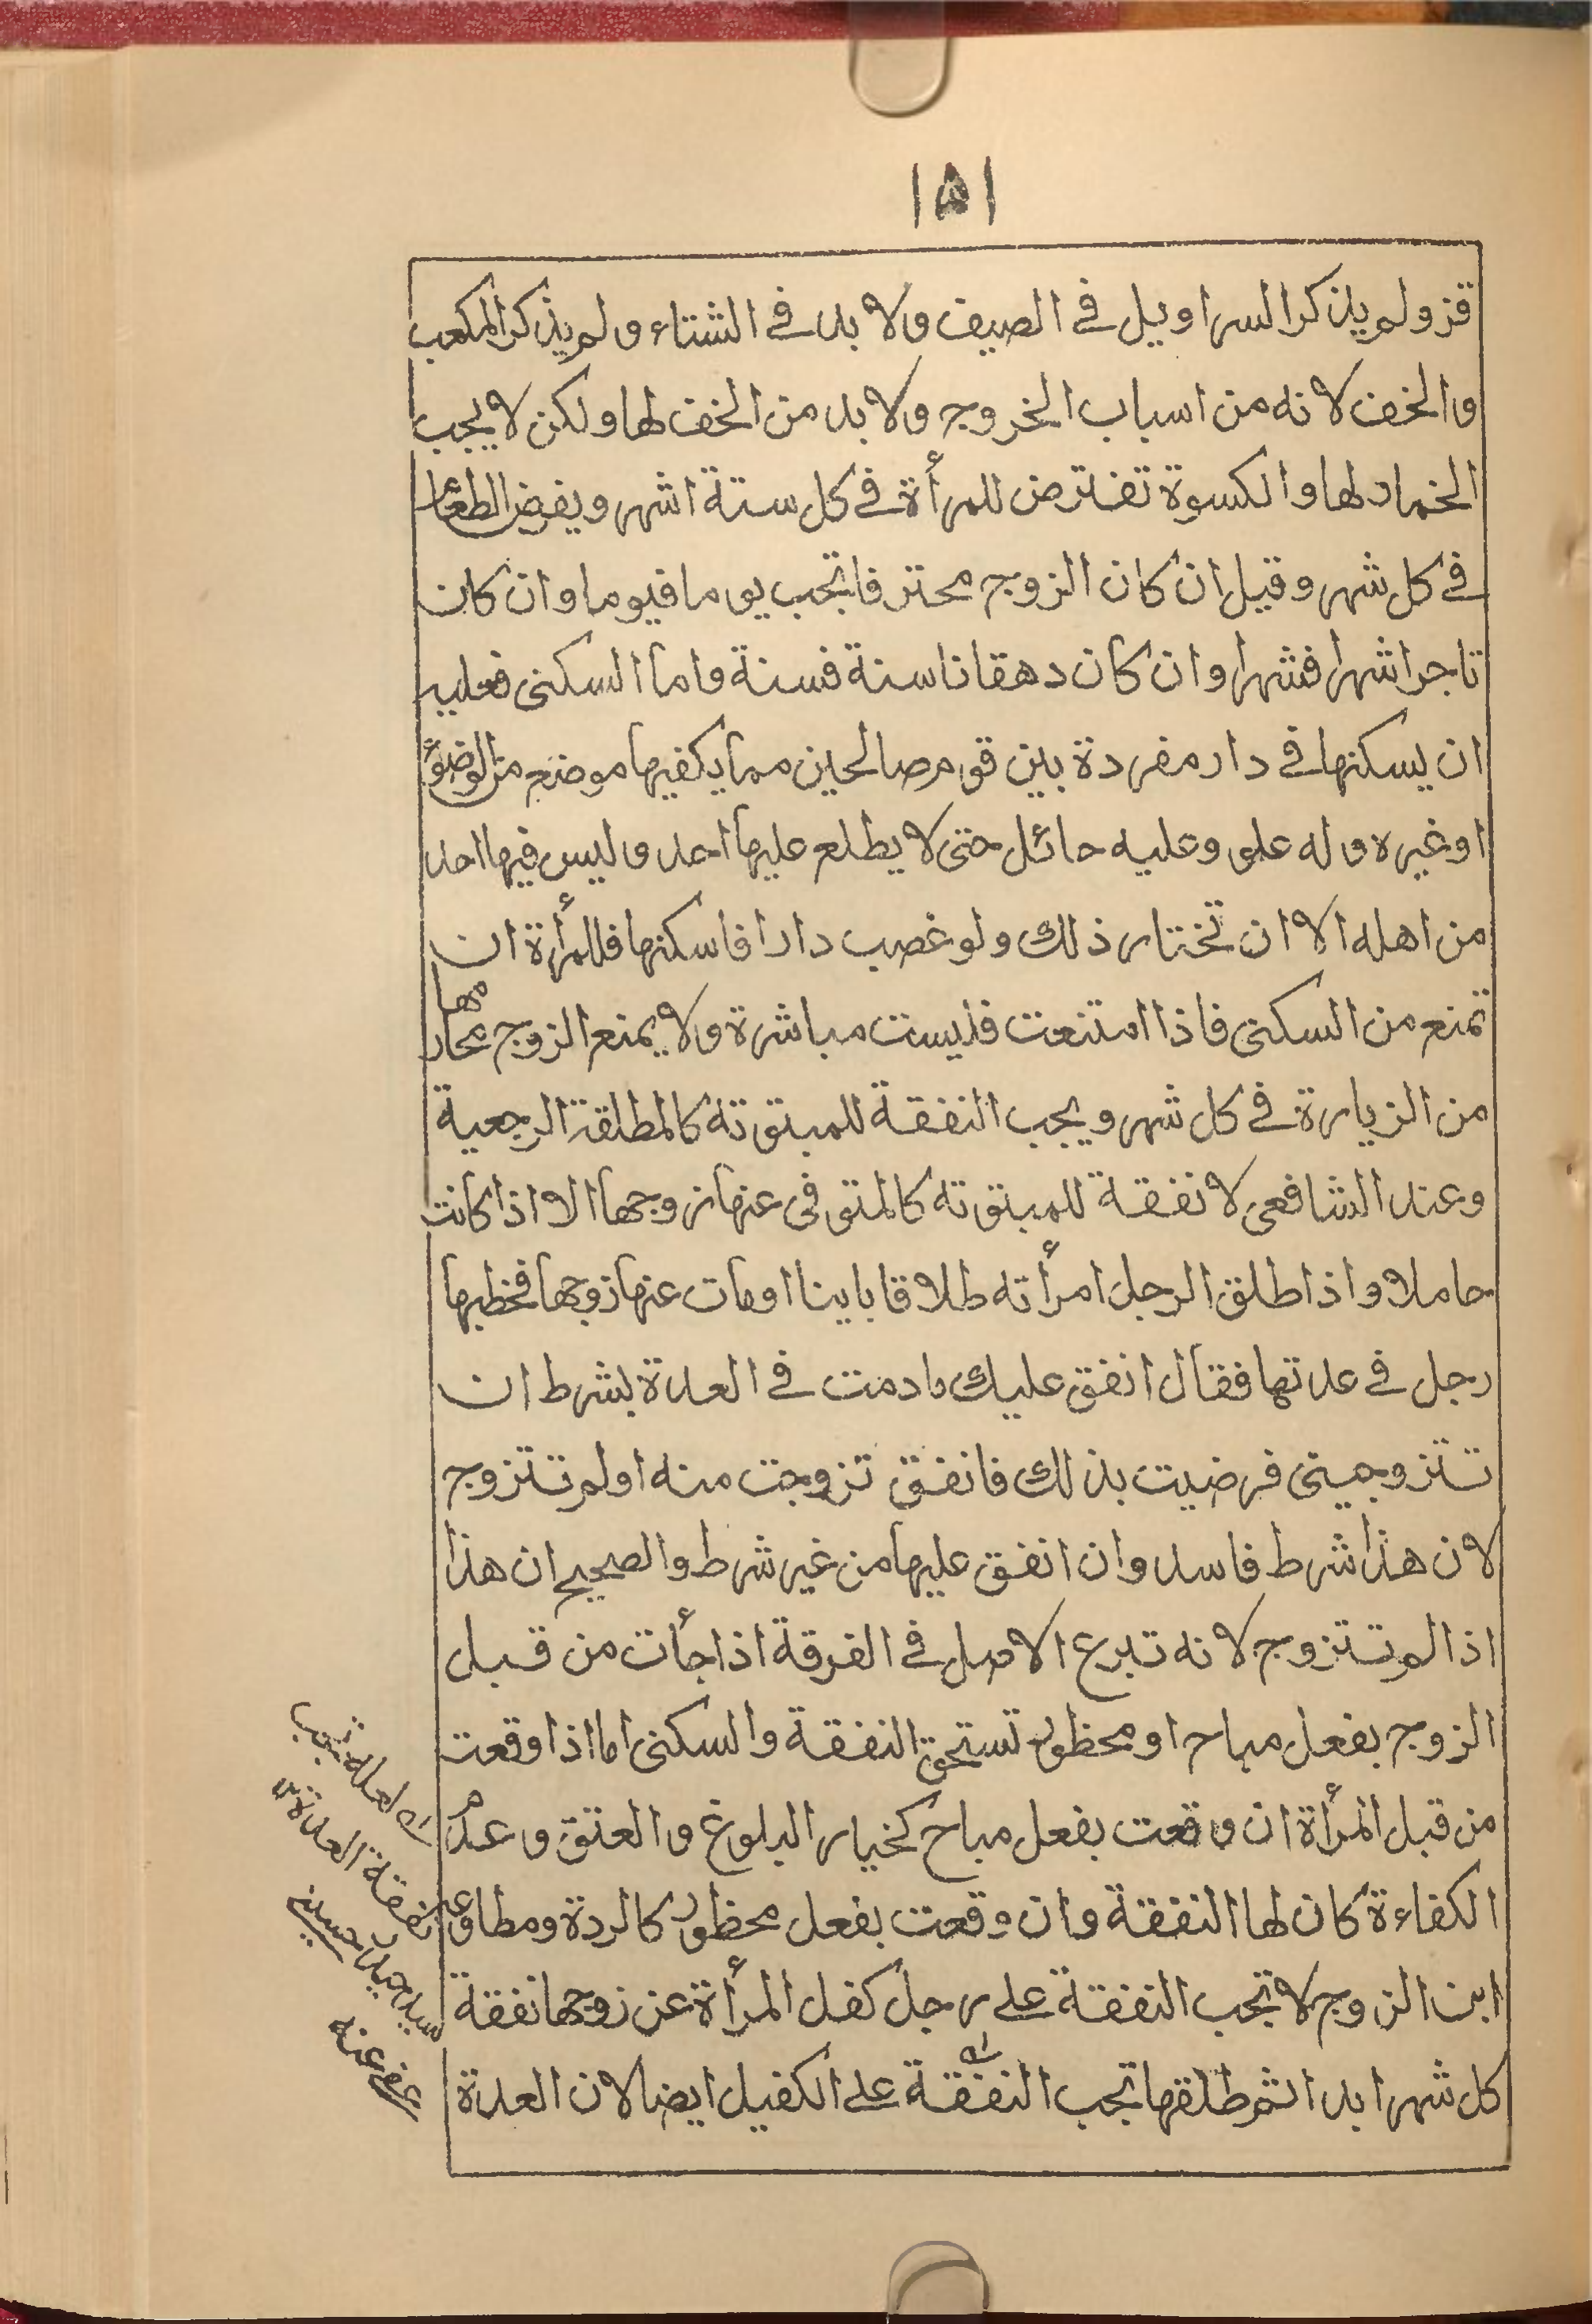 ۱۵۱
قز ولم يذكر السراويل في الصيف ولا بد في الشتاء ولم يذكر المكعب
والخف لانه من اسباب الخروج ولا بد من الخف لها ولكن لا يجب
الخمار لها والكسوة تفترض للمرأة في كل ستة اشهر ويفرض الطعام
في كل شهر وقيل ان كان الزوج محترفا تجب يوما فيوما وان كان
تاجرا شهرا فشهرا وان كان دهقانا سنة فسنة واما السكنى فعليه
ان يسكنها في دار مفردة بين قوم صالحين مما يكفيها موضع من الوضوء
او غيره وله علو وعليه حائل حتى لا يطلع عليها احد وليس فيها احد
من اهله الا ان تختار ذلك ولو غصب دارا فاسكنها فللمرأة ان
تمنع من السكنى فاذا امتنعت فليست مباشرة ولا يمنع الزوج محارمها
من الزيارة في كل شهر ويجب النفقة للمبتوتة كالمطلقة الرجعية
وعند الشافعي لا نفقة للمبتوته كالمتوفى عنها زوجها الا اذا كانت
حاملا واذا طلق الرجل امرأته طلاقا باينا او مات عنها زوجها فخطبها
رجل في عدتها فقال انفق عليك ما دمت في العدة بشرط ان
تتزوجيني فرضيت بذلك فانفق تزوجت منه اولم تتزوج
لان هذا شرط فاسد وان انفق عليها من غير شرط والصحيح ان هذا
اذا لم تتزوج لانه تبرع الاصل في الفرقة اذا جأت من قبل
الزوج بفعل مباح او محظور تستحق النفقة والسكنى اما اذا وقعت
من قبل المرأة ان وقعت بفعل مباح كخيار البلوغ والعتق وعدم
الكفاءة كان لها النفقة وان وقعت بفعل محظور كالردة ومطاوعة
ابن الزوج لا تجب النفقة على رجل كفل المرأة عن زوجها نفقة
كل شهر ابدا ثم طلقها تجب النفقة على الكفيل ايضا لان العدة
لعله تجب
نفقة العدة
سيد جميل حسين
عفي عنه